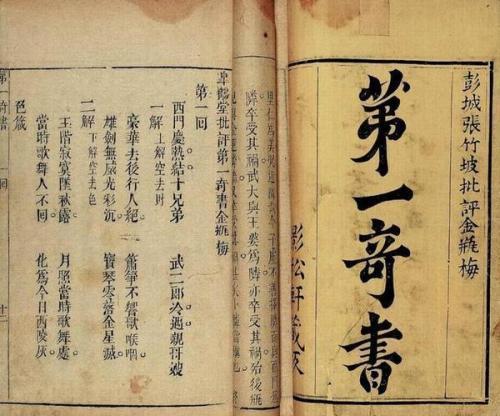 彭城張竹坡批評金瓶梅
苐一奇書
影松軒藏板
隣卒受其禍武大與王婆爲隣亦卒受其禍始後瓶
皐鶴堂批評第一奇書金瓶梅
第一回
西門慶熱結十兄弟 武二郎冷遇親哥嫂
一解 上解空去財
豪華去後行人絕 簫箏不響歌喉咽
雄劍無威光彩沉 寶琴零落金星滅
二解 下解空去色
玉階寂寞墜秋露 月照當時歌舞處
當時歌舞人不回 化爲今日西陵灰
色箴
第一奇書 一回 十二